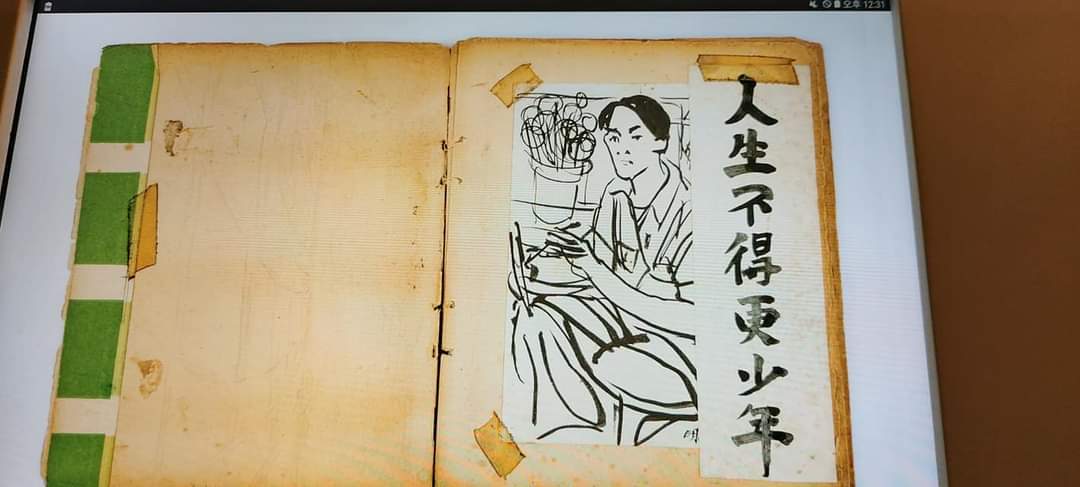 오후 12:31
人生不得更少年
明